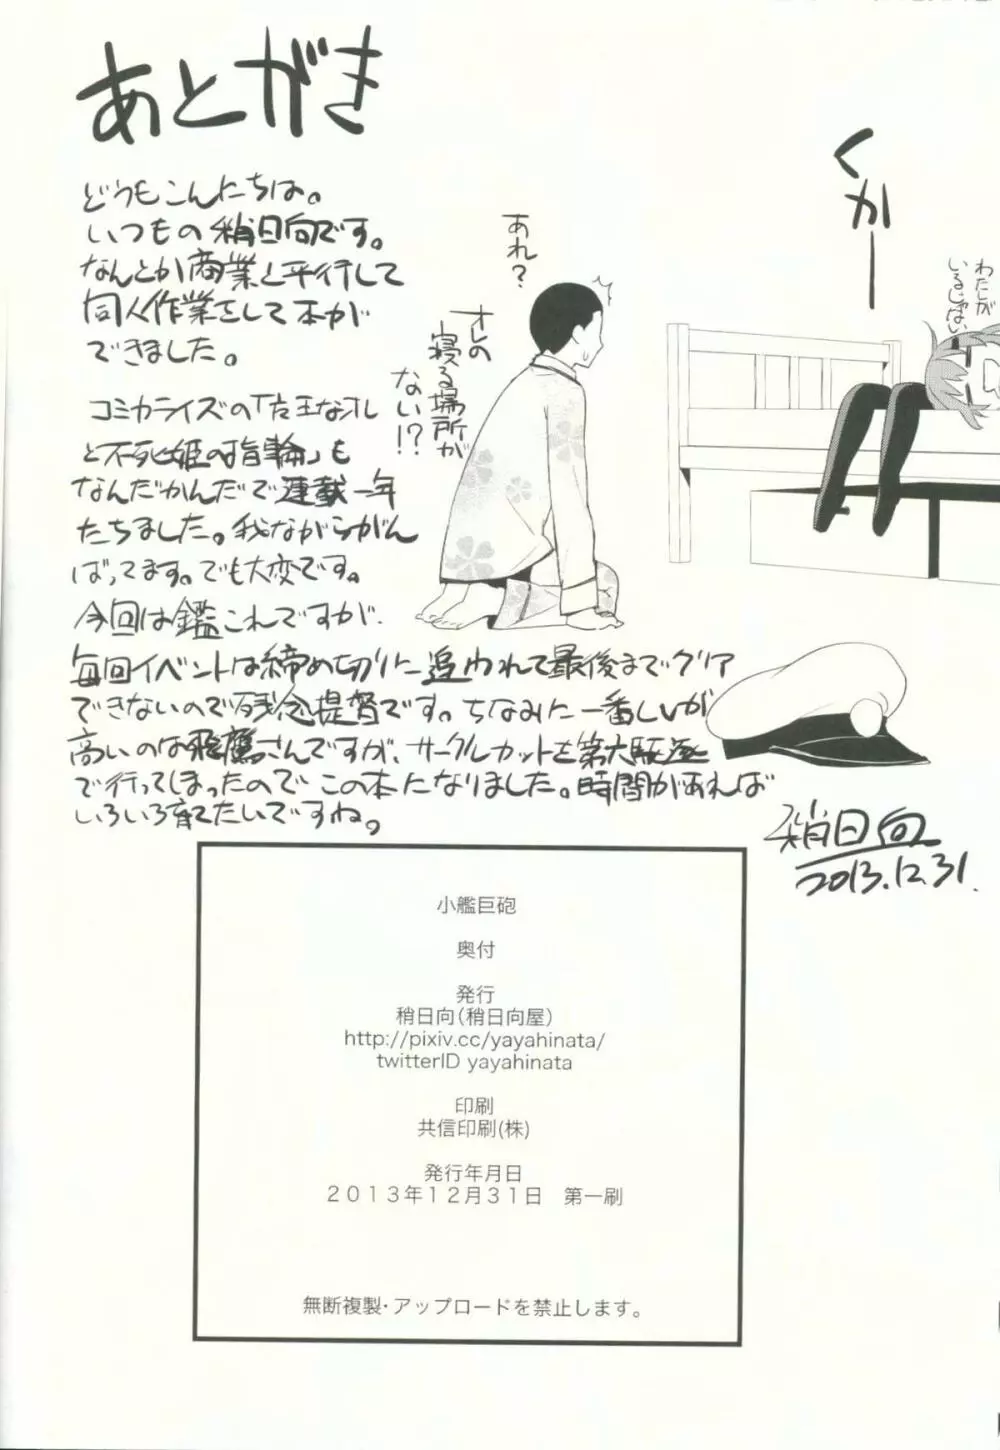 あとがき
どうもこんにちは。
いつもの稍日向です。
なんとか商業と平行して
同人作業をして本が
できました。
コミカライズの「女王なオレ
と不死姫の指輪」も
なんだかんだで連載一年
たちました。我ながらがん
ばってます。でも大変です。
今回は艦これですが、
毎回イベントは締め切りに追われて最後までクリア
できないので残念提督です。ちなみに一番しvが
高いのは飛鷹さんですが、サークルカットを第六駆逐
で行ってしまったのでこの本になりました。時間があれば
いろいろ育てたいですね。
くかー
わたしが
いるじゃない
あれ?
オレの
寝る場所が
ない!?
稍日向
2013.12.31.
小艦巨砲
奥付
発行
稍日向(稍日向屋)
http://pixiv.cc/yayahinata/
twitterID yayahinata
印刷
共信印刷(株)
発行年月日
2013年12月31日 第一刷
無断複製・アップロードを禁止します。